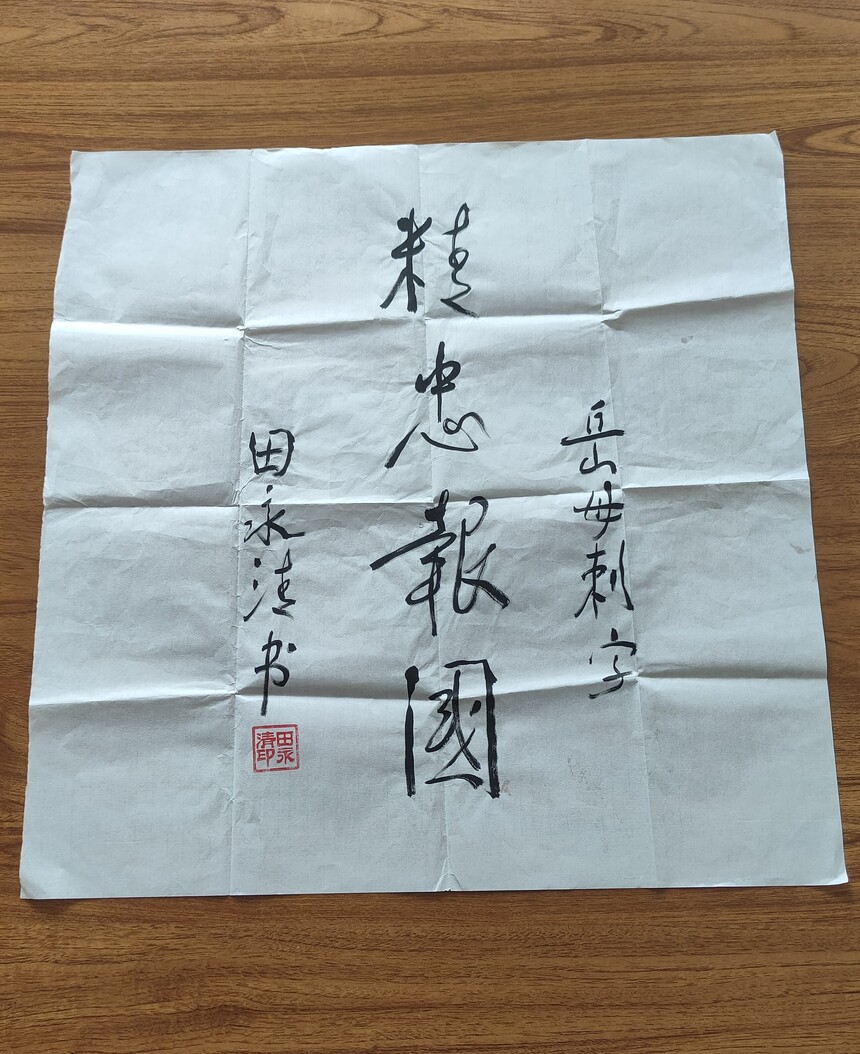 岳母刺字
精忠報國
田永清书
田永清印